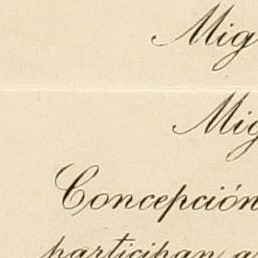 Mig
Mig
Concepción
participan a